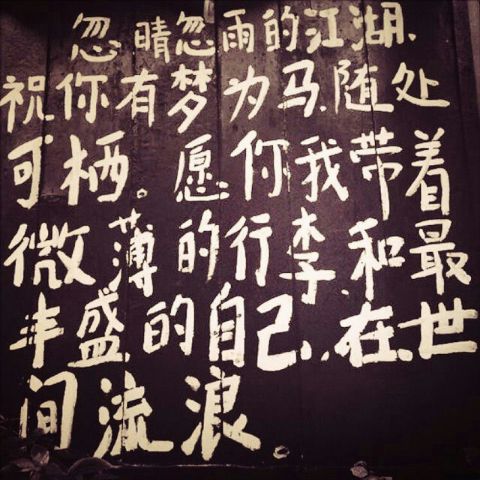 忽晴忽雨的江湖、
祝你有梦为马、随处
可栖。愿你我带着
微薄的行李、和最
丰盛的自己、在世
间流浪。